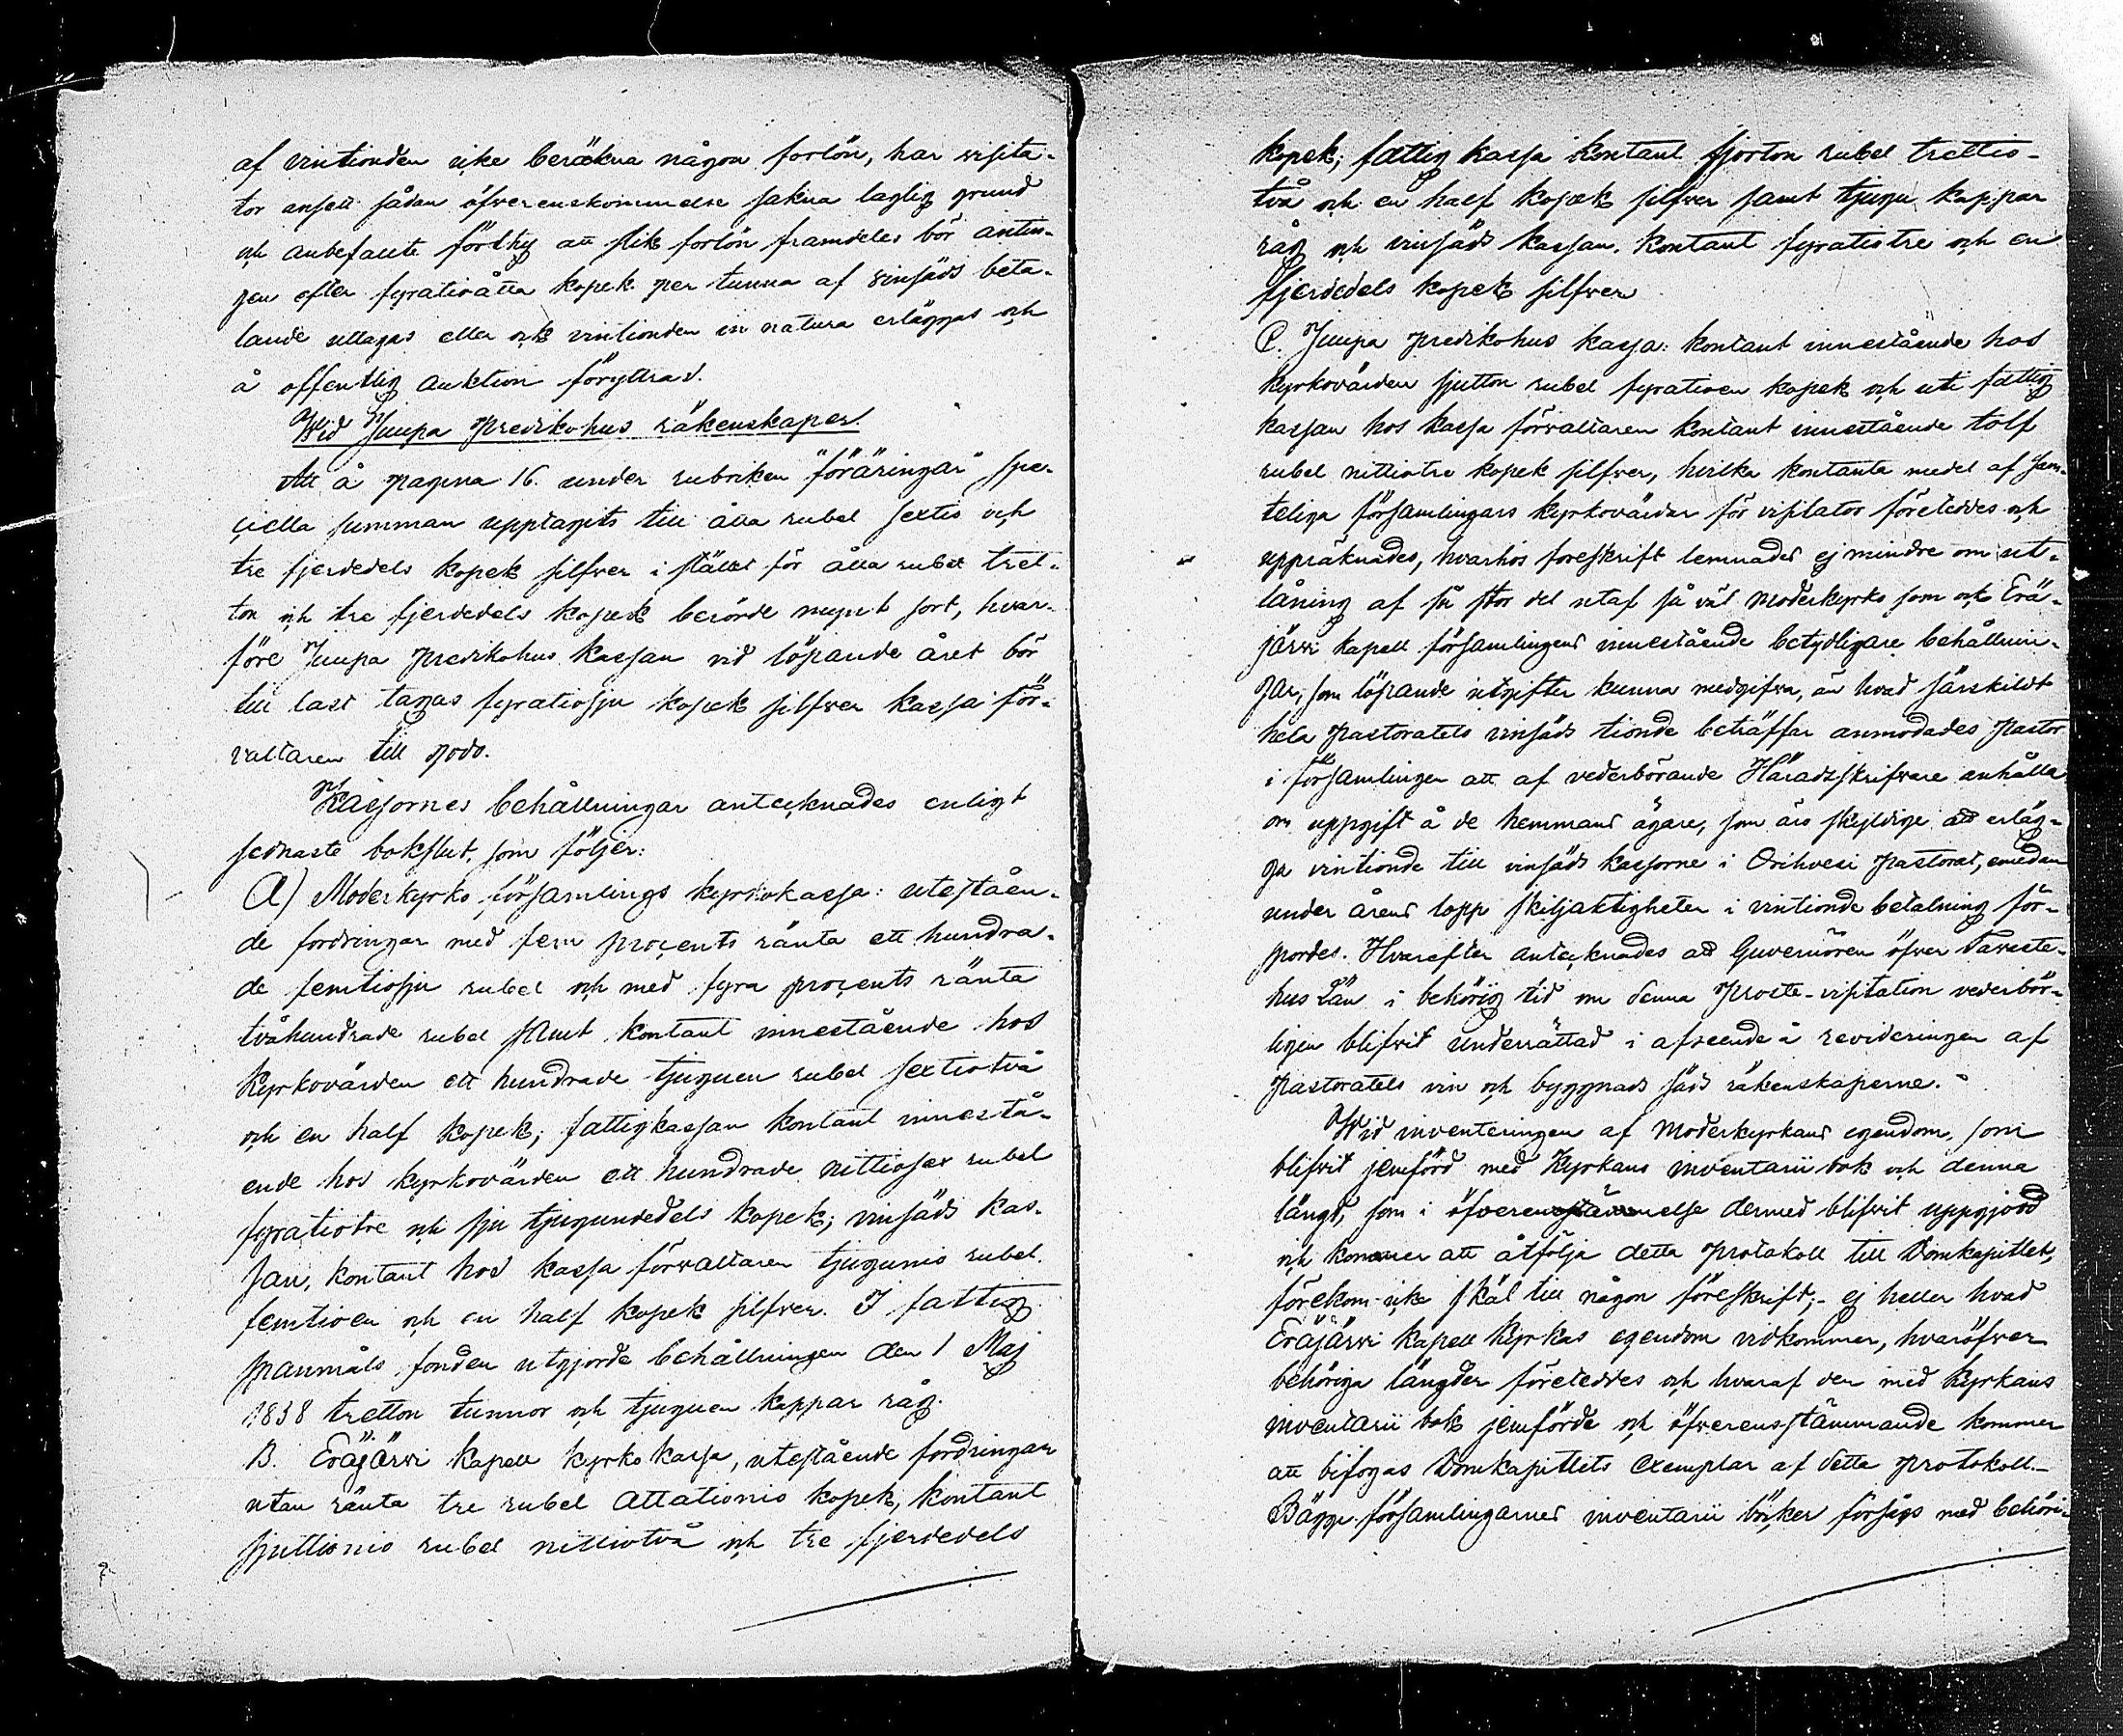 af vintionden icke beräkna någon forlön, har visita-
tor ansett sådan öfverenskommelse sakna laglig grund
och anbefallte förthy att slik forlön framdeles bör antin-
gen efter fyratioåtta kopek per tunna af vinsäds beta-
lande uttagas eller ock vintionden in natura erläggas och
å offentlig auktion föryttras.
Wid Juupa Predikohus räkenskaper.
Att å pagina 16. under rubriken "föräringar" spe-
ciella summan upptagits till åtta rubel sextio och
tre fjerdedels kopek silfver i stället för åtta rubel tret-
ton och tre fjerdedels kopek berörde mynt sort, hvar-
före Juupa Predikohus kassan vid löpande året bör
till last tagas fyratiosju kopek silfver kassa för-
valtaren till godo.
Kassornes behållningar antecknades enligt
sednaste bokslut, som följer:
A) Moderkyrko församlings kyrkokassa: uteståen-
de fordringar med fem procents ränta ett hundra-
de femtiosju rubel och med fyra procents ränta
tvåhundrade rubel samt kontant innestående hos
Kyrkovärden ett hundrade tjuguen rubel sextiotvå
och en half kopek; fattigkassan kontant innestå-
ende hos kyrkovärden ett hundrade nittiosex rubel
fyratiotre och sju tjugundedels kopek; vinsäds kas-
san, kontant hos kassa förvaltaren tjugunio rubel
femtioen och en half kopek silfver. I fattig
spanmåls fonden utgjorde behållningen den 1 Maj
1838 tretton tunnor och tjuguen kappar råg.
B. Eräjärvi Kapell kyrko kassa, utestående fordringar
utan ränta tre rubel åttationio kopek, kontant
sjuttionio rubel nittiotvå och tre fjerdedels
kopek; fattig kassa kontant fjorton rubel trettio-
två och en half kopek silfver samt tjugu kappar
råg och vinsäds kassan. kontant fyratiotre och en
fjerdedels kopek silfver
C. Juupa Predikohus kassa: kontant innestående hos
kyrkovärden sjutton rubel fyratioen kopek och uti fattig
kassan hos kassa förvaltaren kontant innestående tolf
rubel nittiotre kopek silfver, hvilka kontanta medel af sam-
teliga församlingars kyrkovärdar för visitator företeddes och
uppräknades, hvarhos foreskrift lemnades ej mindre om ut-
låning af så stor del utaf så väl moderkyrko som ock Erä-
järvi kapell församlingens innestående betydligare behållnin-
gar, som löpande utgifter kunna medgifva, än hvad särskildt
hela Pastoratets vinsäds tionde beträffar anmodades Pastor
i församlingen att af vederbörande Häradsskrifvare anhålla
om uppgift å de hemmans ägare, som äro skyldige att erläg-
ga vintionde till vinsäds kassorne i Orihvesi Pastorat, emedan
under årens lopp skiljaktigheter i vintionde betalning för-
spordes. Hvarefter antecknades att Guvernören öfver Tavaste-
hus Län i behörig tid om denna Proste-visitation vederbör-
ligen blifvit underrättad i afseende å revideringen af
Pastoratets vin och byggnads säds räkenskaperne.
Wid inventeringen af Moderkyrkans egendom, som
blifvit jemförd med Kyrkans inventarii bok och denna
längd, som i öfverensstämmelse dermed blifvit uppgjord
och kommer att åtfölja detta Protokoll till Domkapitlet,
förekom icke skäl till någon föreskrift; ej heller hvad
Eräjärvi Kapell Kyrkas egendom vidkommer, hvaröfver
behöriga längder företeddes och hvaraf den med Kyrkans
inventarii bok jemförde och öfverensstämmande kommer
att bifogas Domkapitlets Exemplar af detta Protokoll.-
Bägge församlingarnes inventarii böcker försågs med behöri-